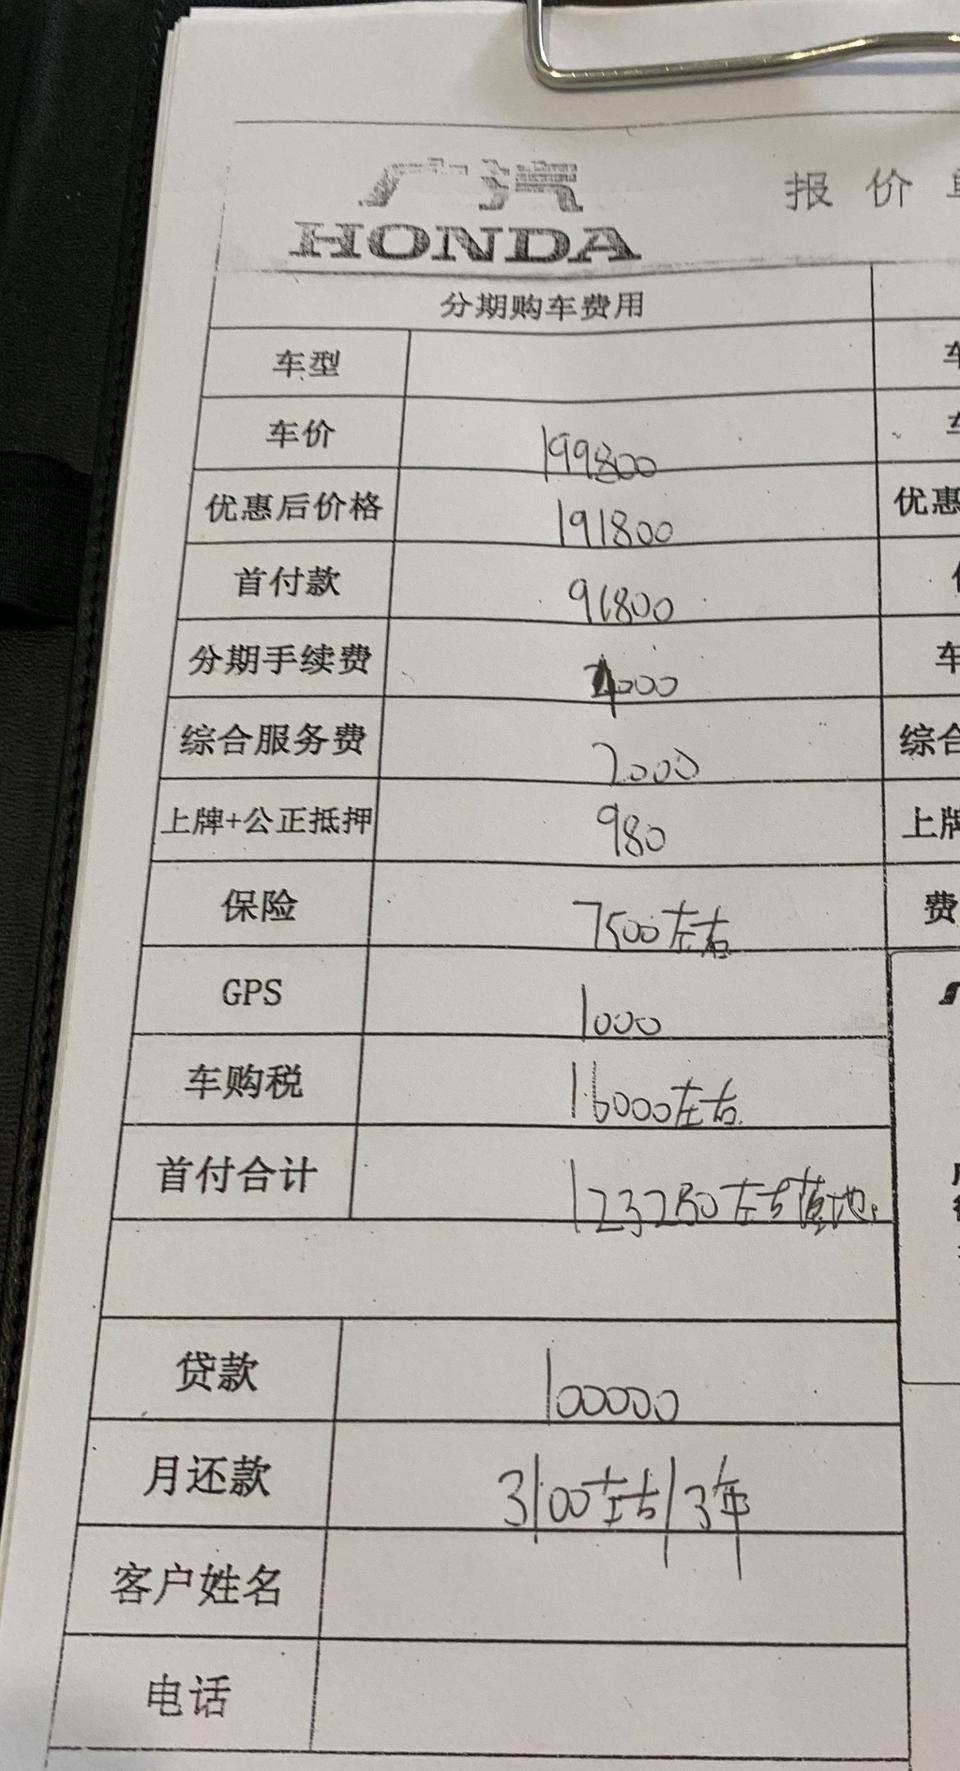 广汽
HONDA
报价
分期购车费用
车型
车价 199800
优惠后价格 191800
优惠
首付款 91800
分期手续费 4000
综合服务费 2000
综合
上牌+公正抵押 980
上牌
保险 7500左右
费
GPS 1000
车购税 16000左右
首付合计 123280左右落地
贷款 100000
月还款 3100左右/3年
客户姓名
电话